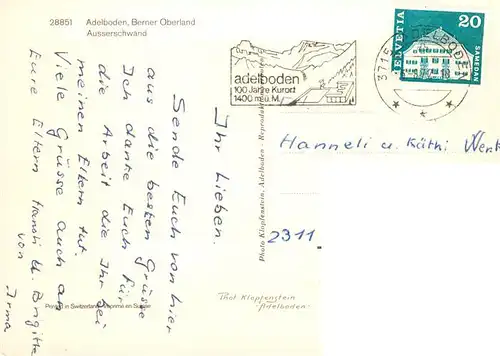 28851 Adelboden, Berner Oberland
Ausserschwand
Ihr Lieben.
Sende Euch von hier
aus die besten Grüsse
Ich danke Euch für
die Arbeit die Ihr bei
meinen Eltern tut.
Viele Grüsse auch an
Eure Eltern Hansli u. Brigitte
von
Irma
adelboden
100 Jahre Kurort
1400 m. ü. M.
3715 ADELBODEN
HELVETIA 20
SAMEDAN
Hanneli u. Käthi Wenk
2311.
Photo Klopfenstein, Adelboden
Phot. Klopfenstein
Adelboden
Printed in Switzerland